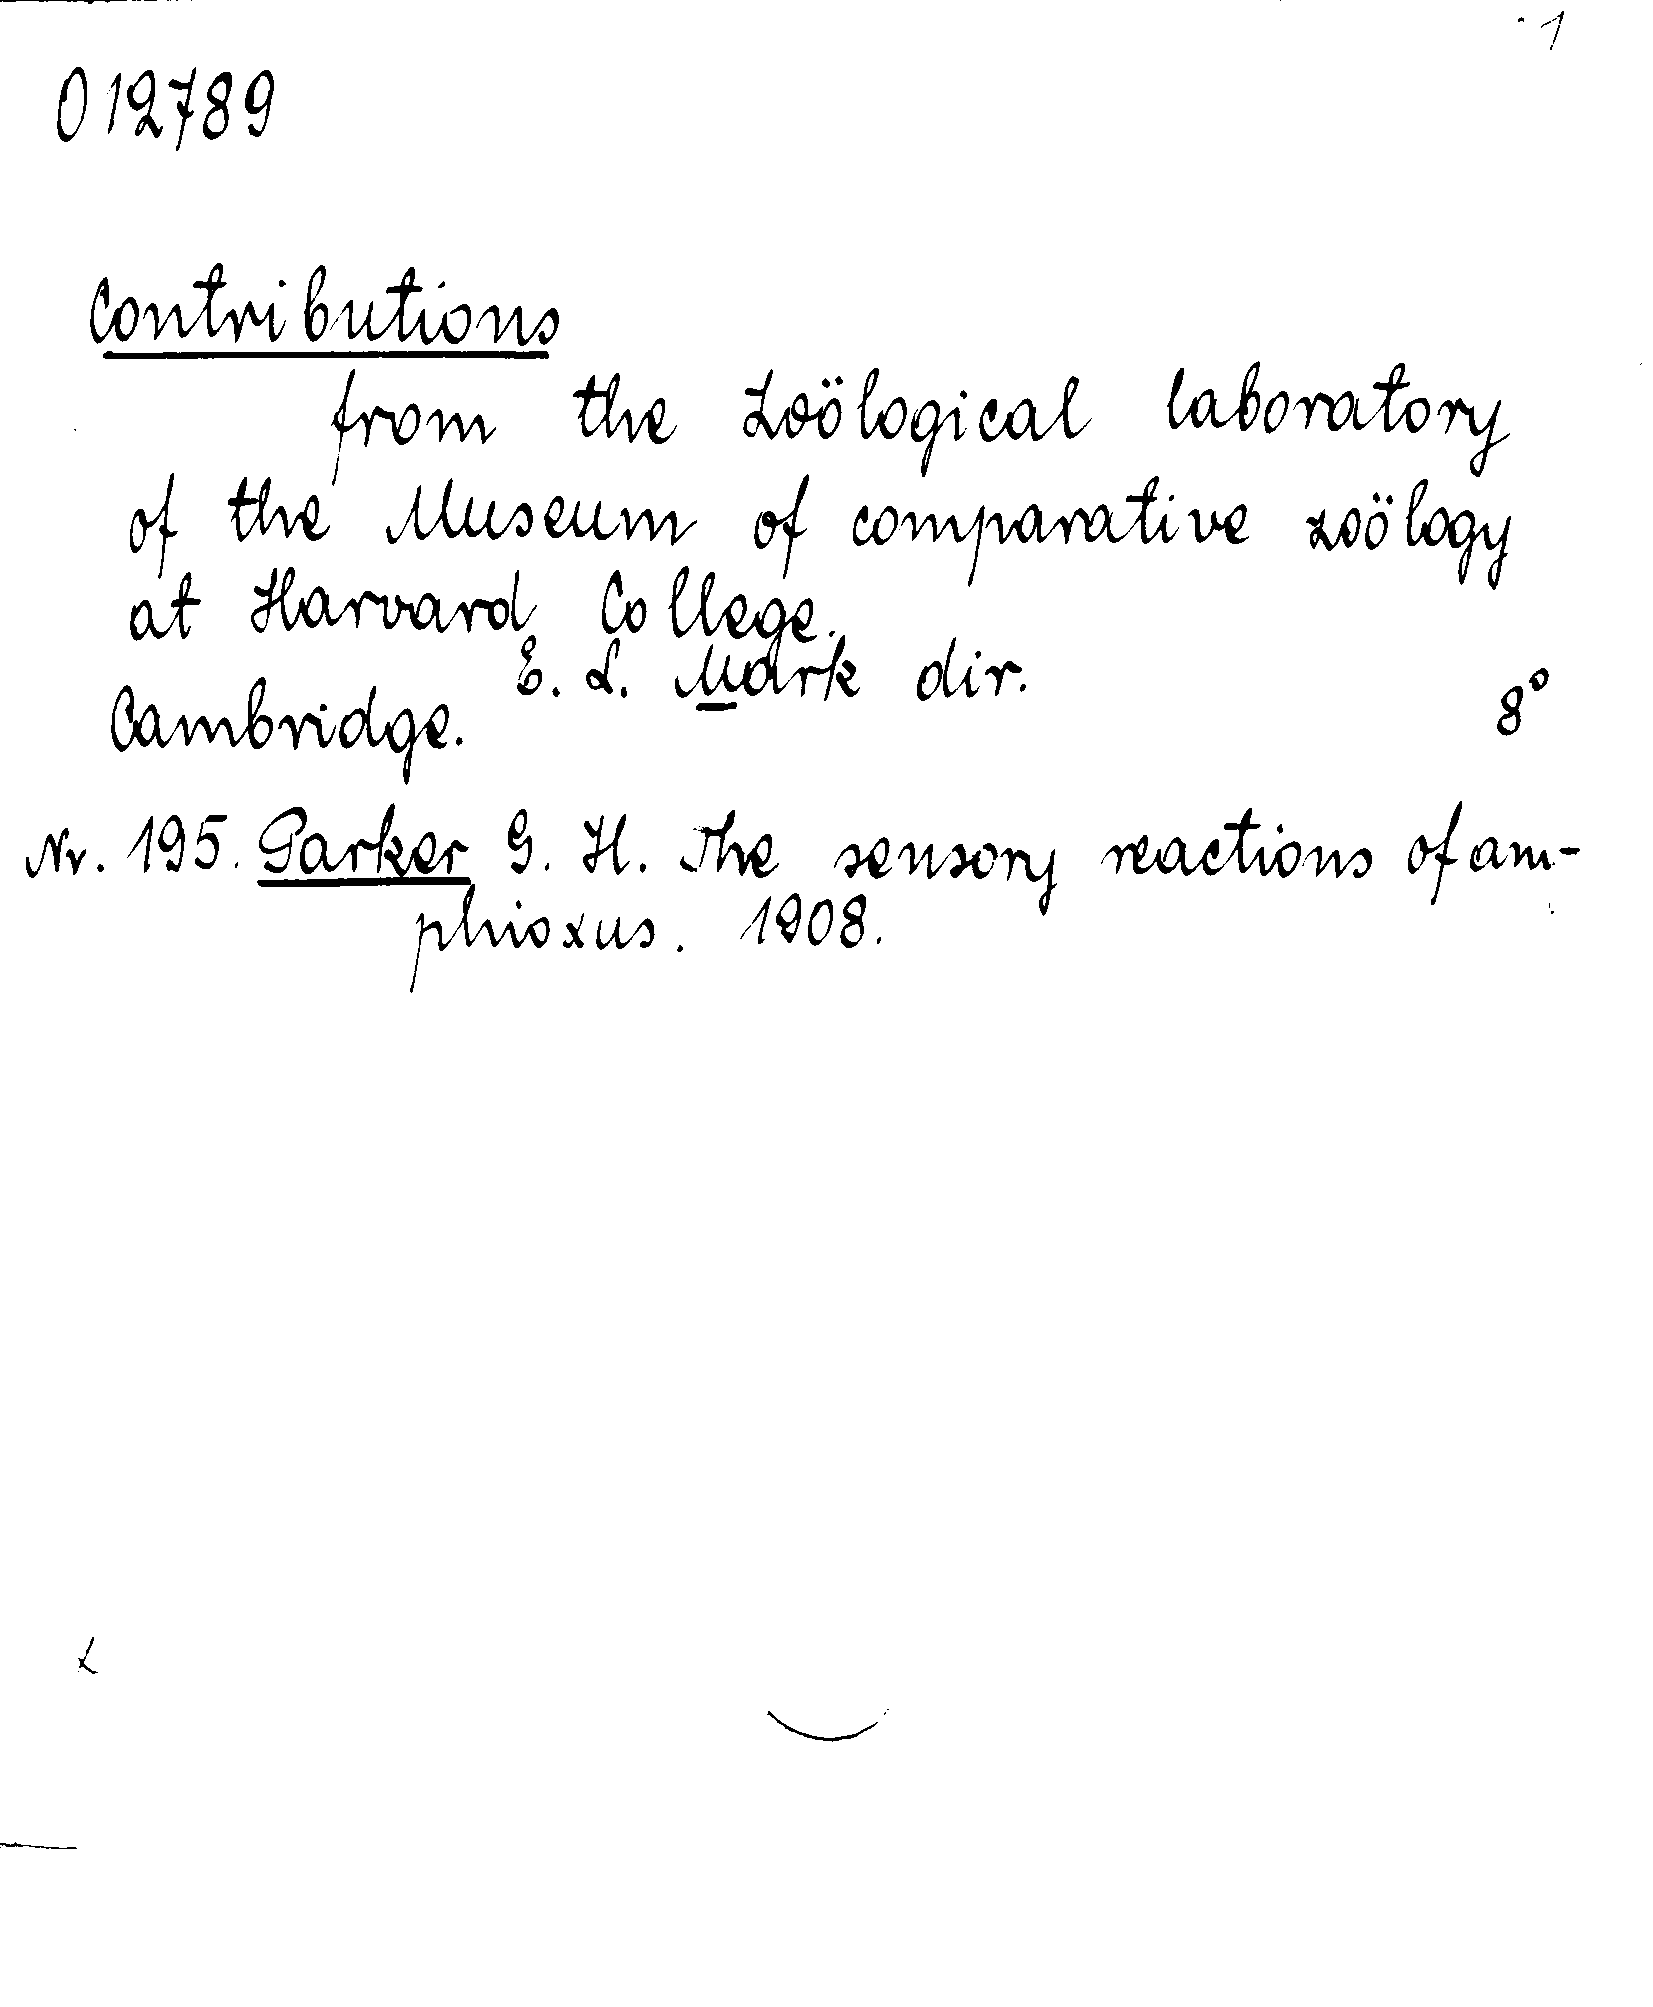 1
012789
Contributions
from the Zoölogical laboratory
of the Museum of comparative zoölogy
at Harvard College.
E. L. Mark dir.
Cambridge. 8°
Nr. 195. Parker G. H. The sensory reactions of am-
phioxus. 1908.